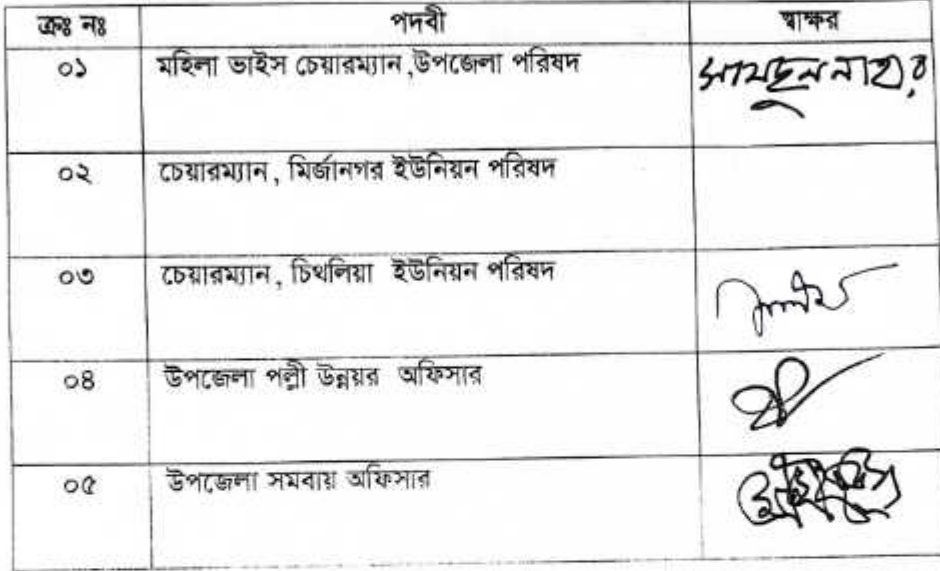 ক্রঃ নঃ পদবী স্বাক্ষর
০১ মহিলা ভাইস চেয়ারম্যান,উপজেলা পরিষদ সামছুন নাহার
০২ চেয়ারম্যান, মির্জানগর ইউনিয়ন পরিষদ
০৩ চেয়ারম্যান, চিথলিয়া ইউনিয়ন পরিষদ
০৪ উপজেলা পল্লী উন্নয়র অফিসার
০৫ উপজেলা সমবায় অফিসার